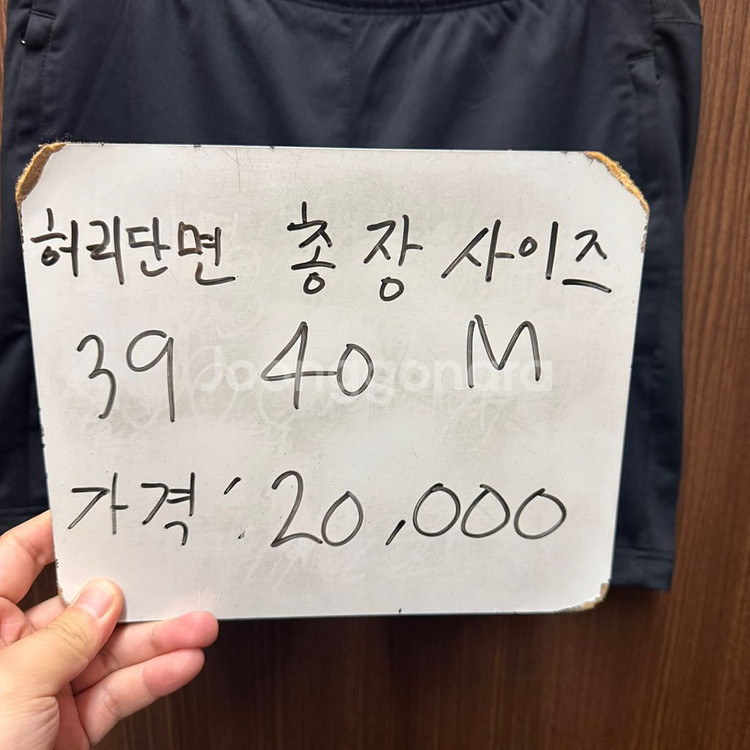 허리단면 총장 사이즈
39 40 M
Joonggonara
가격: 20,000